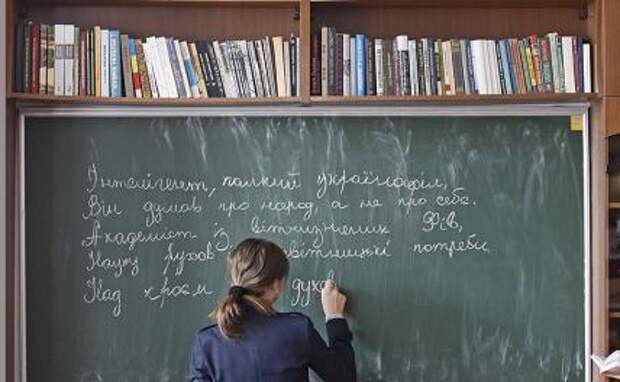 Інтелігент, палкий українофіл,
Він думав про народ, а не про себе.
Академіст із вітчизняних Фів,
Науку рухав світницькі потреби
Над краєм духов